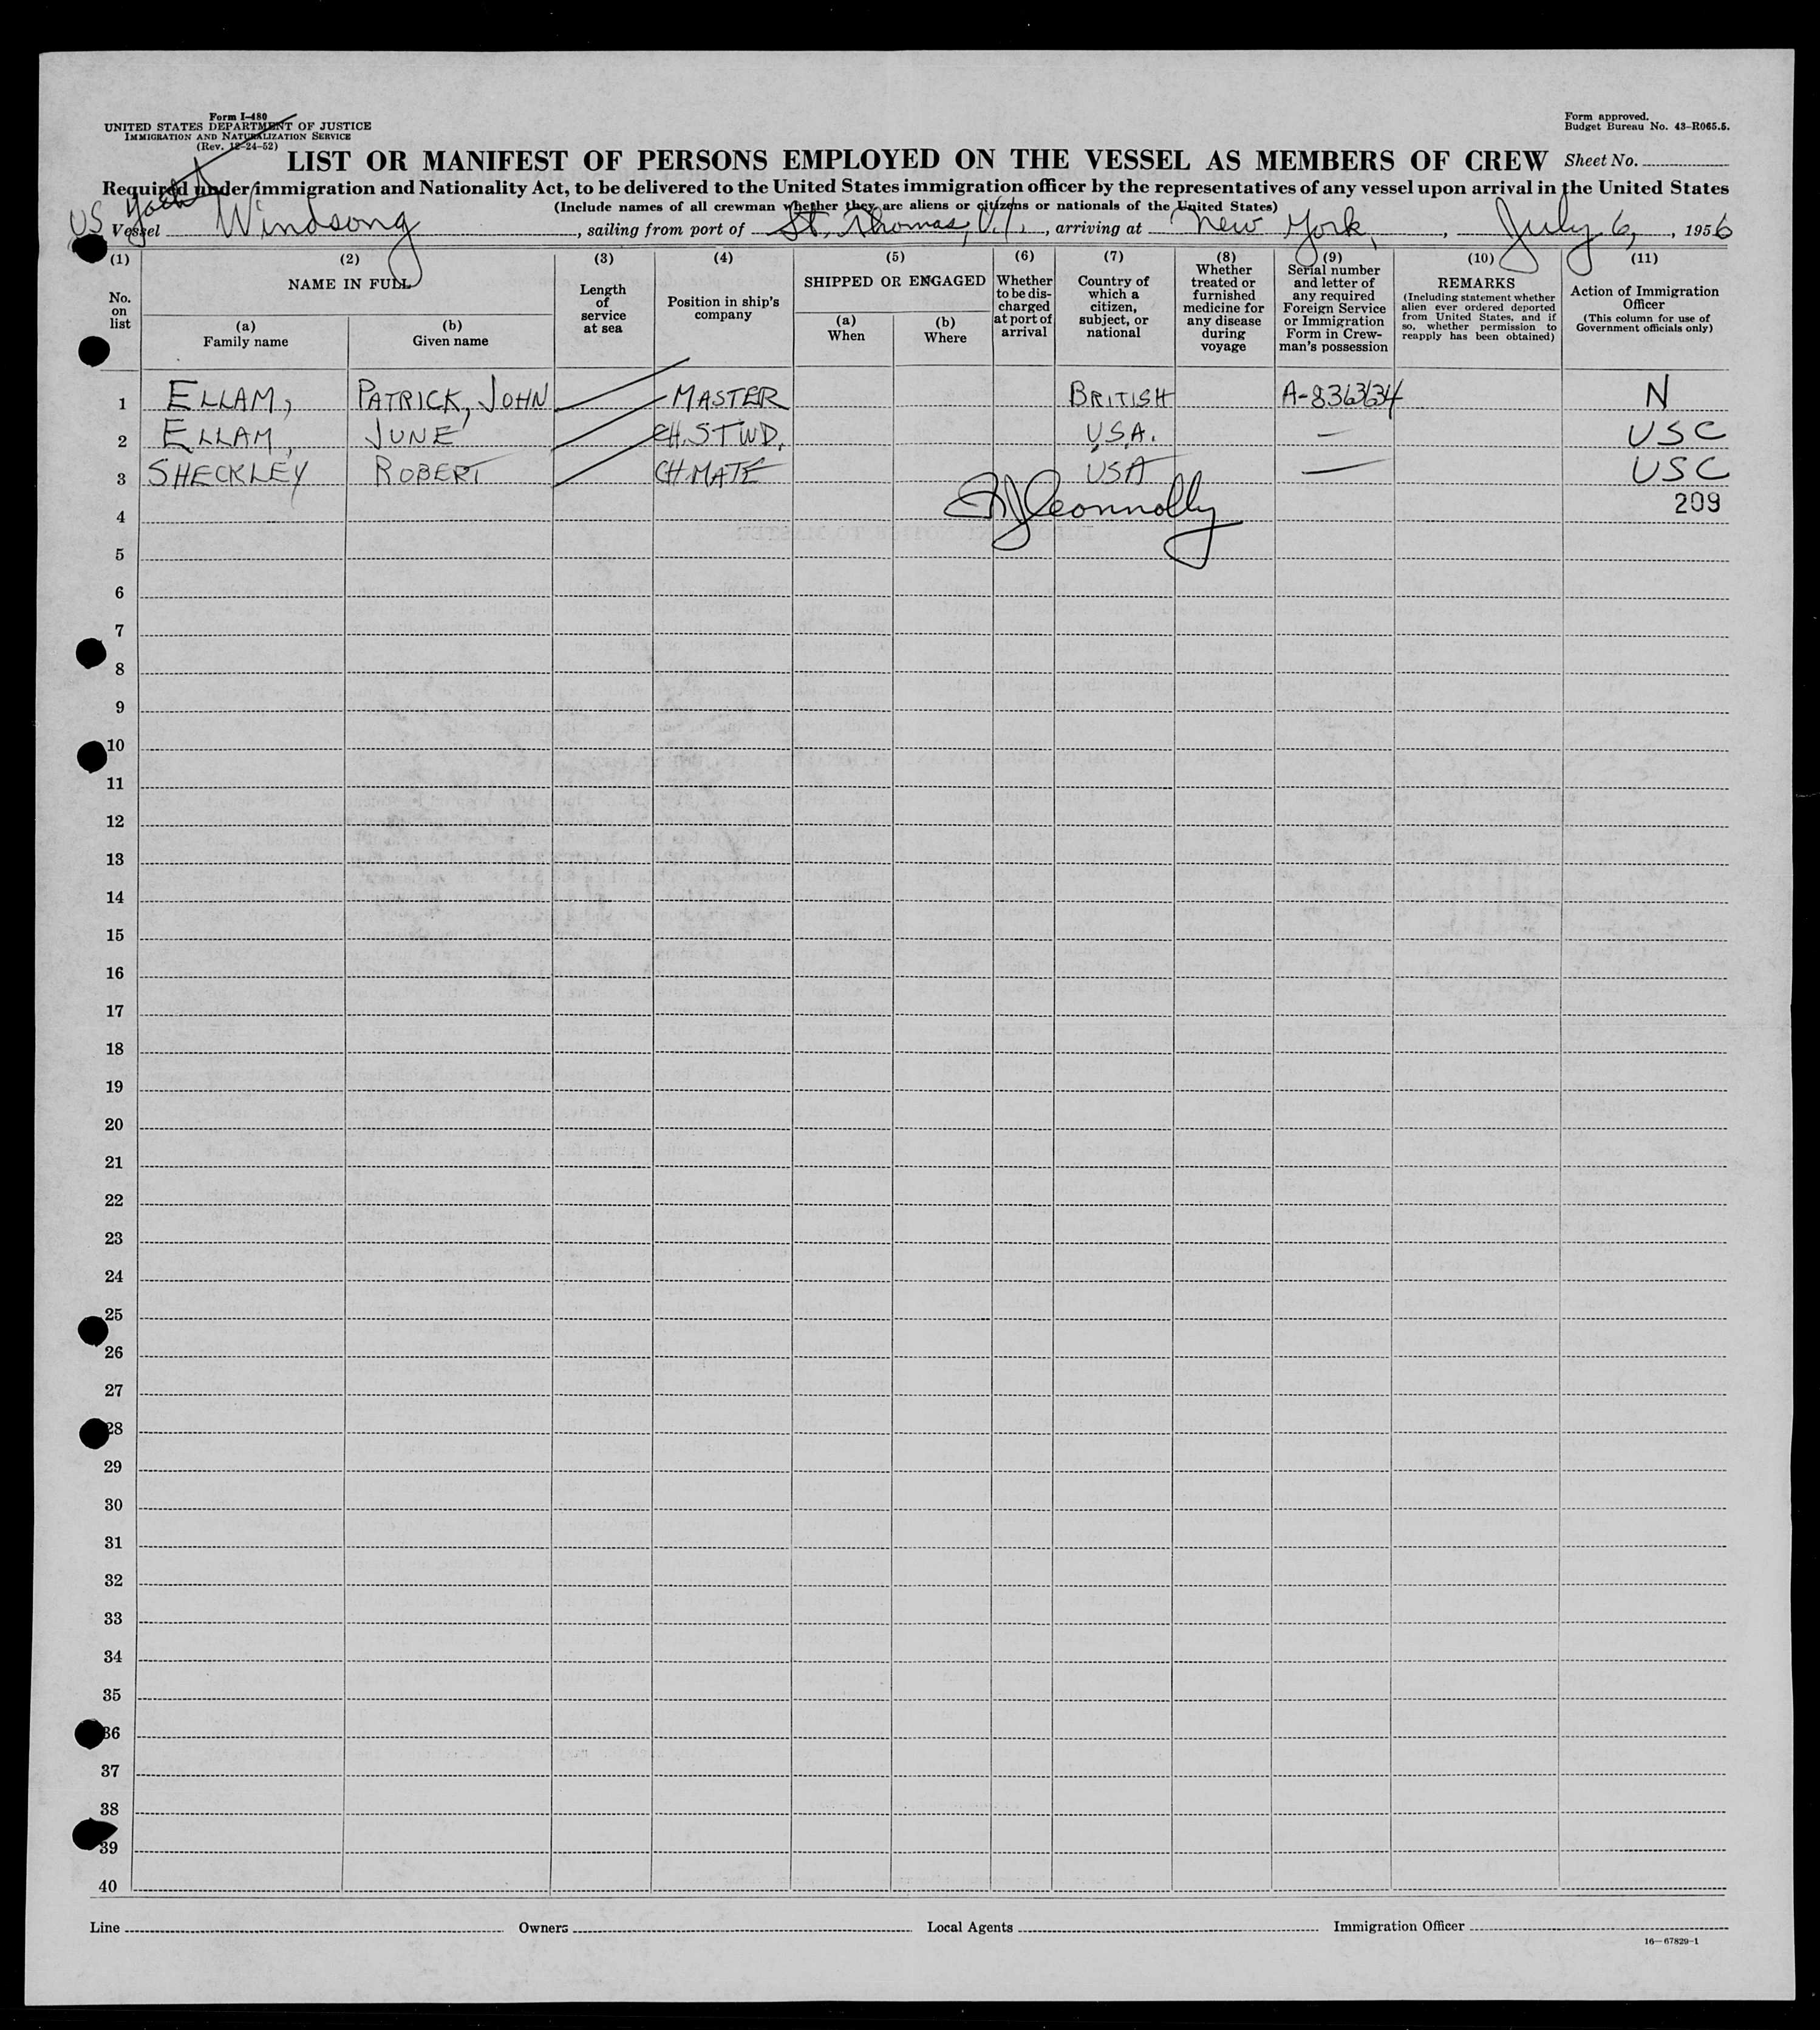 Form I-480
UNITED STATES DEPARTMENT OF JUSTICE
IMMIGRATION AND NATURALIZATION SERVICE
(Rev. 12-24-52)
Form approved.
Budget Bureau No. 43-R065.5.
LIST OR MANIFEST OF PERSONS EMPLOYED ON THE VESSEL AS MEMBERS OF CREW Sheet No.
Required under immigration and Nationality Act, to be delivered to the United States immigration officer by the representatives of any vessel upon arrival in the United States
(Include names of all crewman whether they are aliens or citizens or nationals of the United States)
US Yacht
Vessel Windsong, sailing from port of St. Thomas, V.I., arriving at New York, , July 6, , 1956
(1) (2) (3) (4) (5) (6) (7) (8) (9) (10) (11)
No. on list
NAME IN FULL
(a) Family name
(b) Given name
Length of service at sea
Position in ship's company
SHIPPED OR ENGAGED
(a) When
(b) Where
Whether to be discharged at port of arrival
Country of which a citizen, subject, or national
Whether treated or furnished medicine for any disease during voyage
Serial number and letter of any required Foreign Service or Immigration Form in Crewman's possession
REMARKS
(Including statement whether alien ever ordered deported from United States, and if so, whether permission to reapply has been obtained)
Action of Immigration Officer
(This column for use of Government officials only)
1 ELLAM, PATRICK, JOHN MASTER BRITISH A-8363634 N
2 ELLAM, JUNE CH. STWD. U.S.A. — USC
3 SHECKLEY ROBERT CH MATE USA — USC
4 209
Connolly
5
6
7
8
9
10
11
12
13
14
15
16
17
18
19
20
21
22
23
24
25
26
27
28
29
30
31
32
33
34
35
36
37
38
39
40
Line Owners Local Agents Immigration Officer
16—67829-1